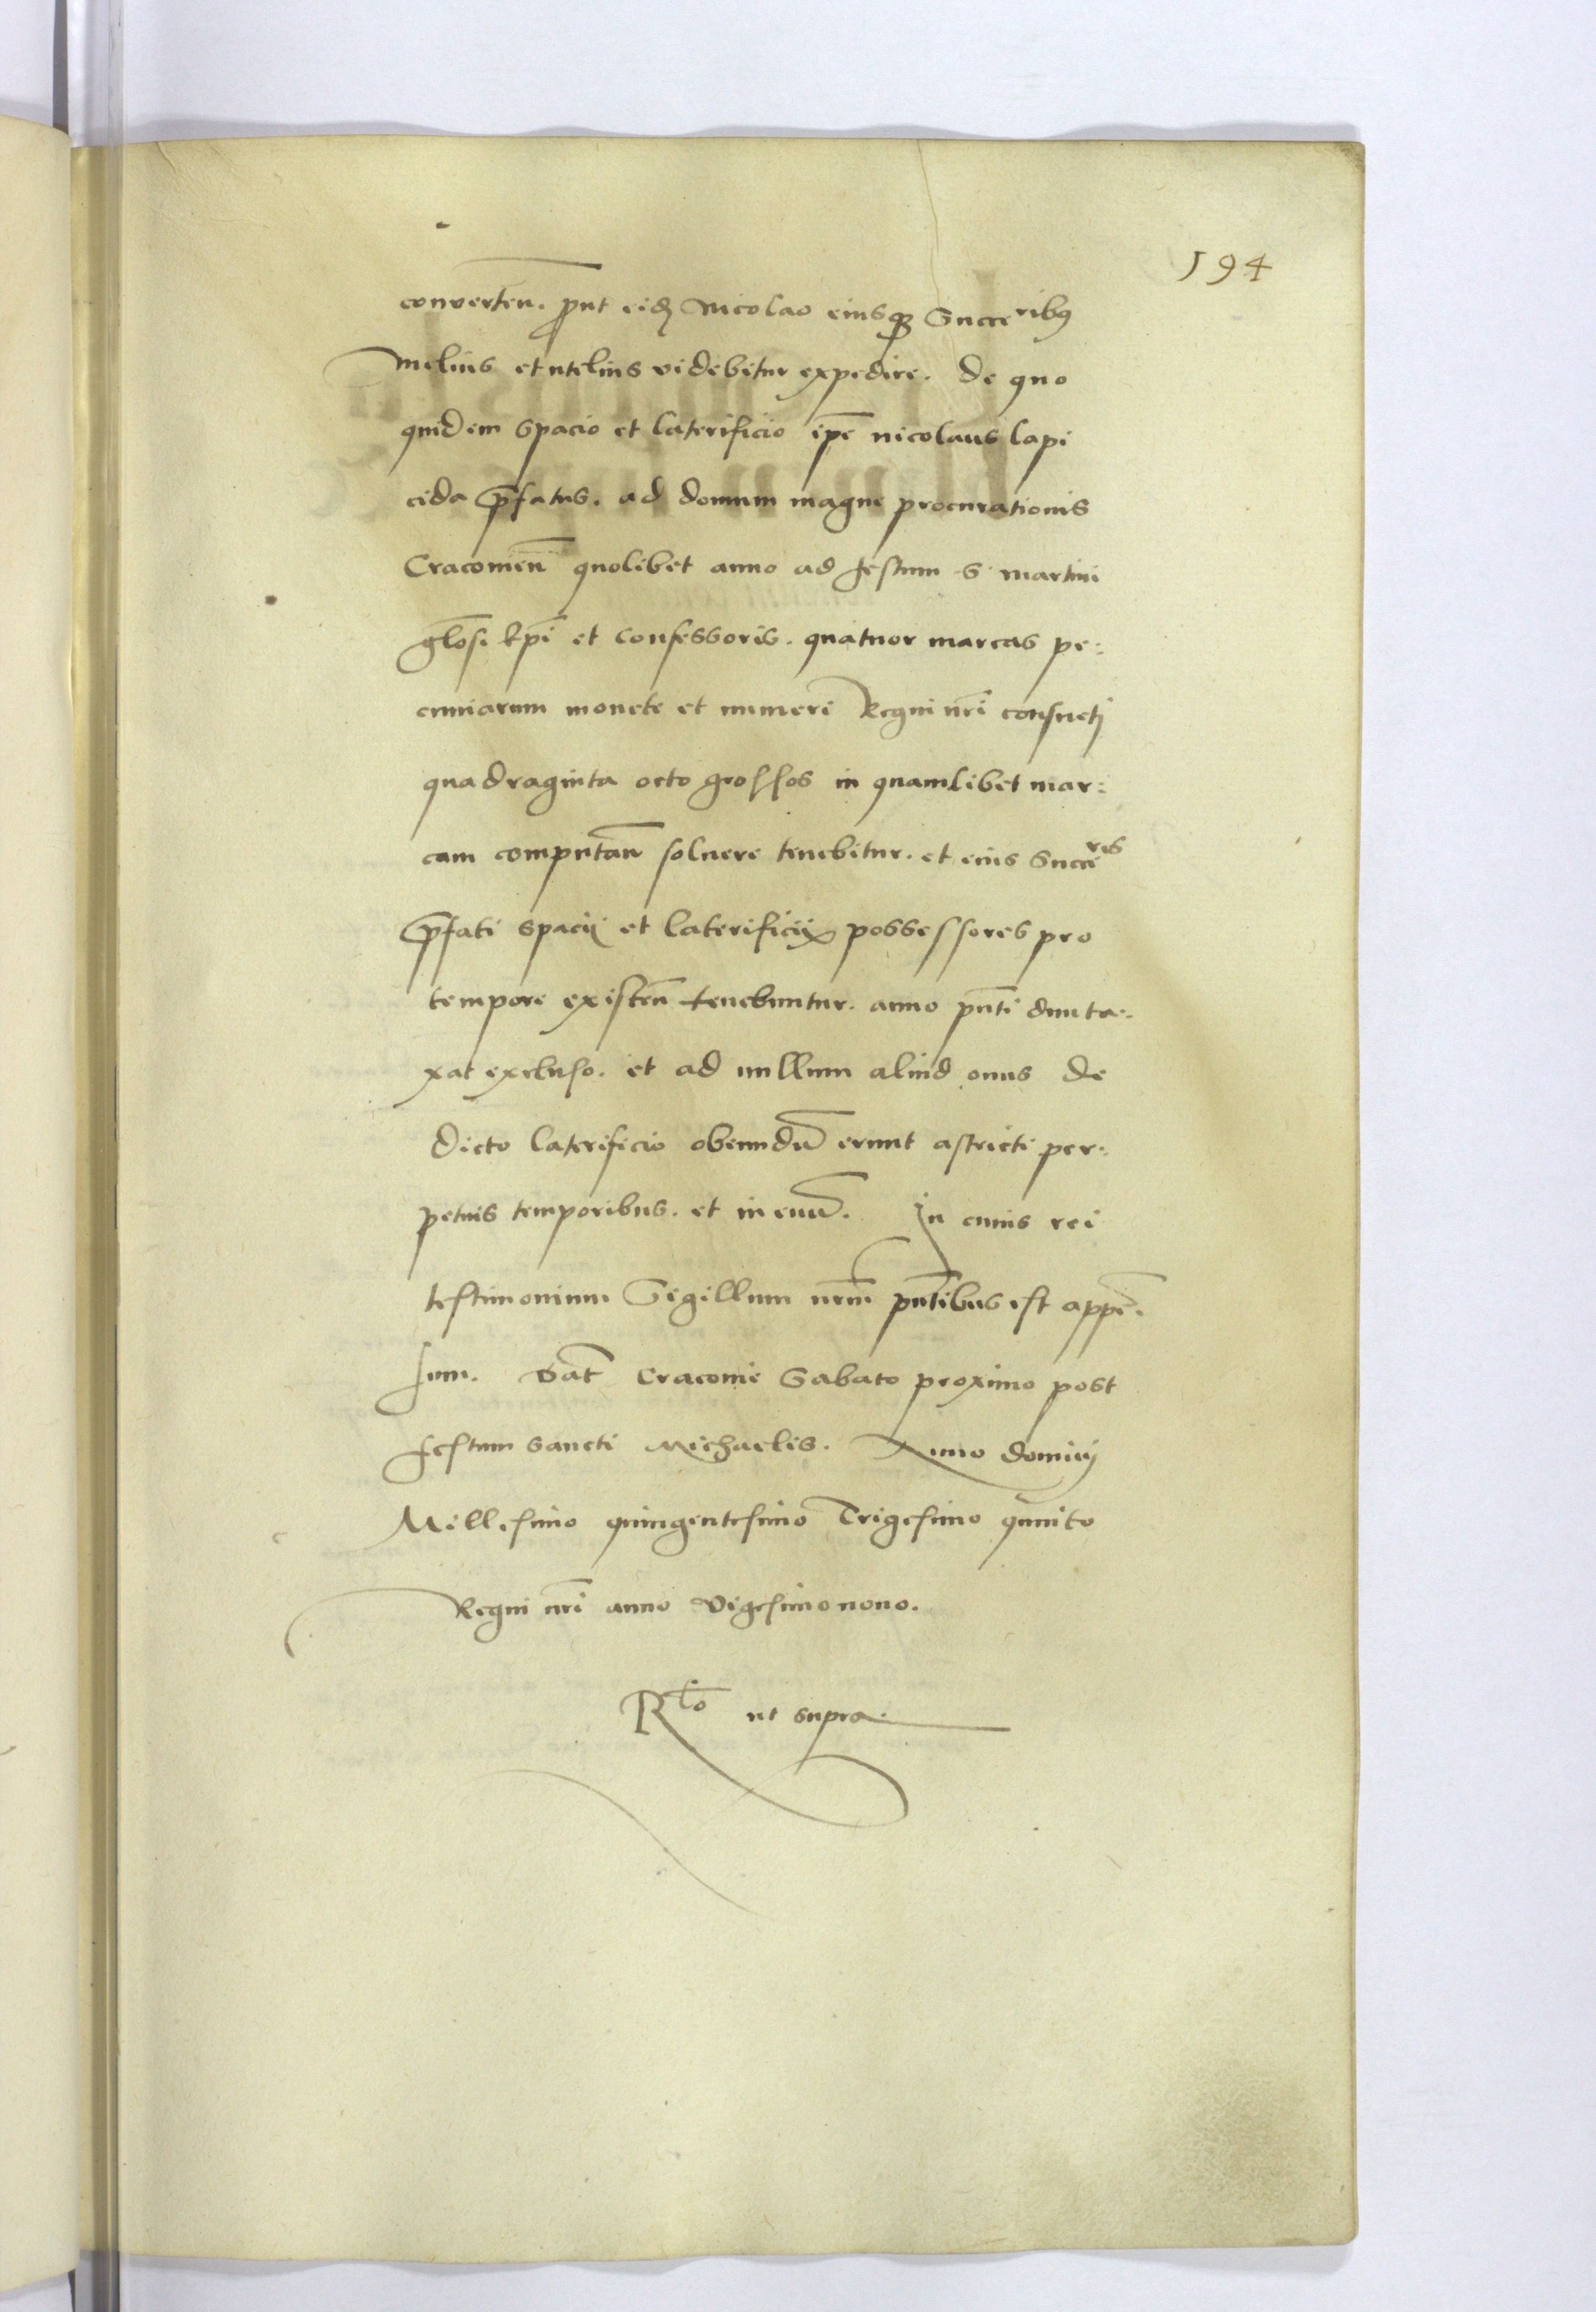 194
converten̄. ꝓut eidꝫ Nicolao eiusqꝫ Succeribꝰ
melius et utelius videbitur expedire. de quo
quidem spacio et laterificio ip̄e nicolaus lapi
cida p̄fatus. ad domum magne procurationis
Cracouien̄ quolibet anno ad festum S martini
gl̄osi Ep̄i et confessoris. quatuor marcas pe:
cuniarum monete et numeri Regni nr̄i consueti
quadraginta octo grossos in quamlibet mar:
cam computan̄ soluere tenebitur. et eius Succeres
p̄fati spacii et laterificii possessores pro
tempore existen̄ tenebuntur. anno pn̄ti dunta:
xat excluso. et ad nullum aliud onus de
dicto laterificio obeundū erunt astricti per:
petuis temporibus. et in euū. In cuius rei
testimonium Sigillum nr̄m pn̄tibus est appē:
sum. Dat̄ Cracouie Sabato proximo post
festum Sancti Michaelis. Anno dominj
Millesimo quingentesimo Trigesimo quinto
Regni nr̄i anno vigesimonono.
Rlo ut supra.